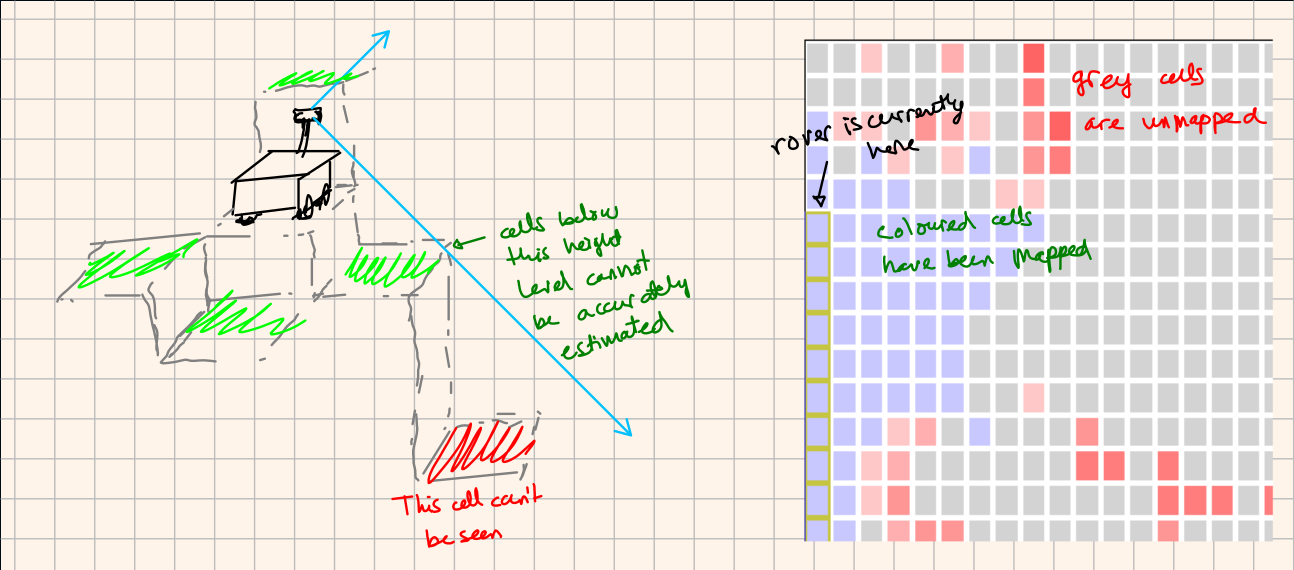 cells below
this height
level cannot
be accurately
estimated
This cell can't
be seen
rover is currently
here
grey cells
are unmapped
coloured cells
have been mapped